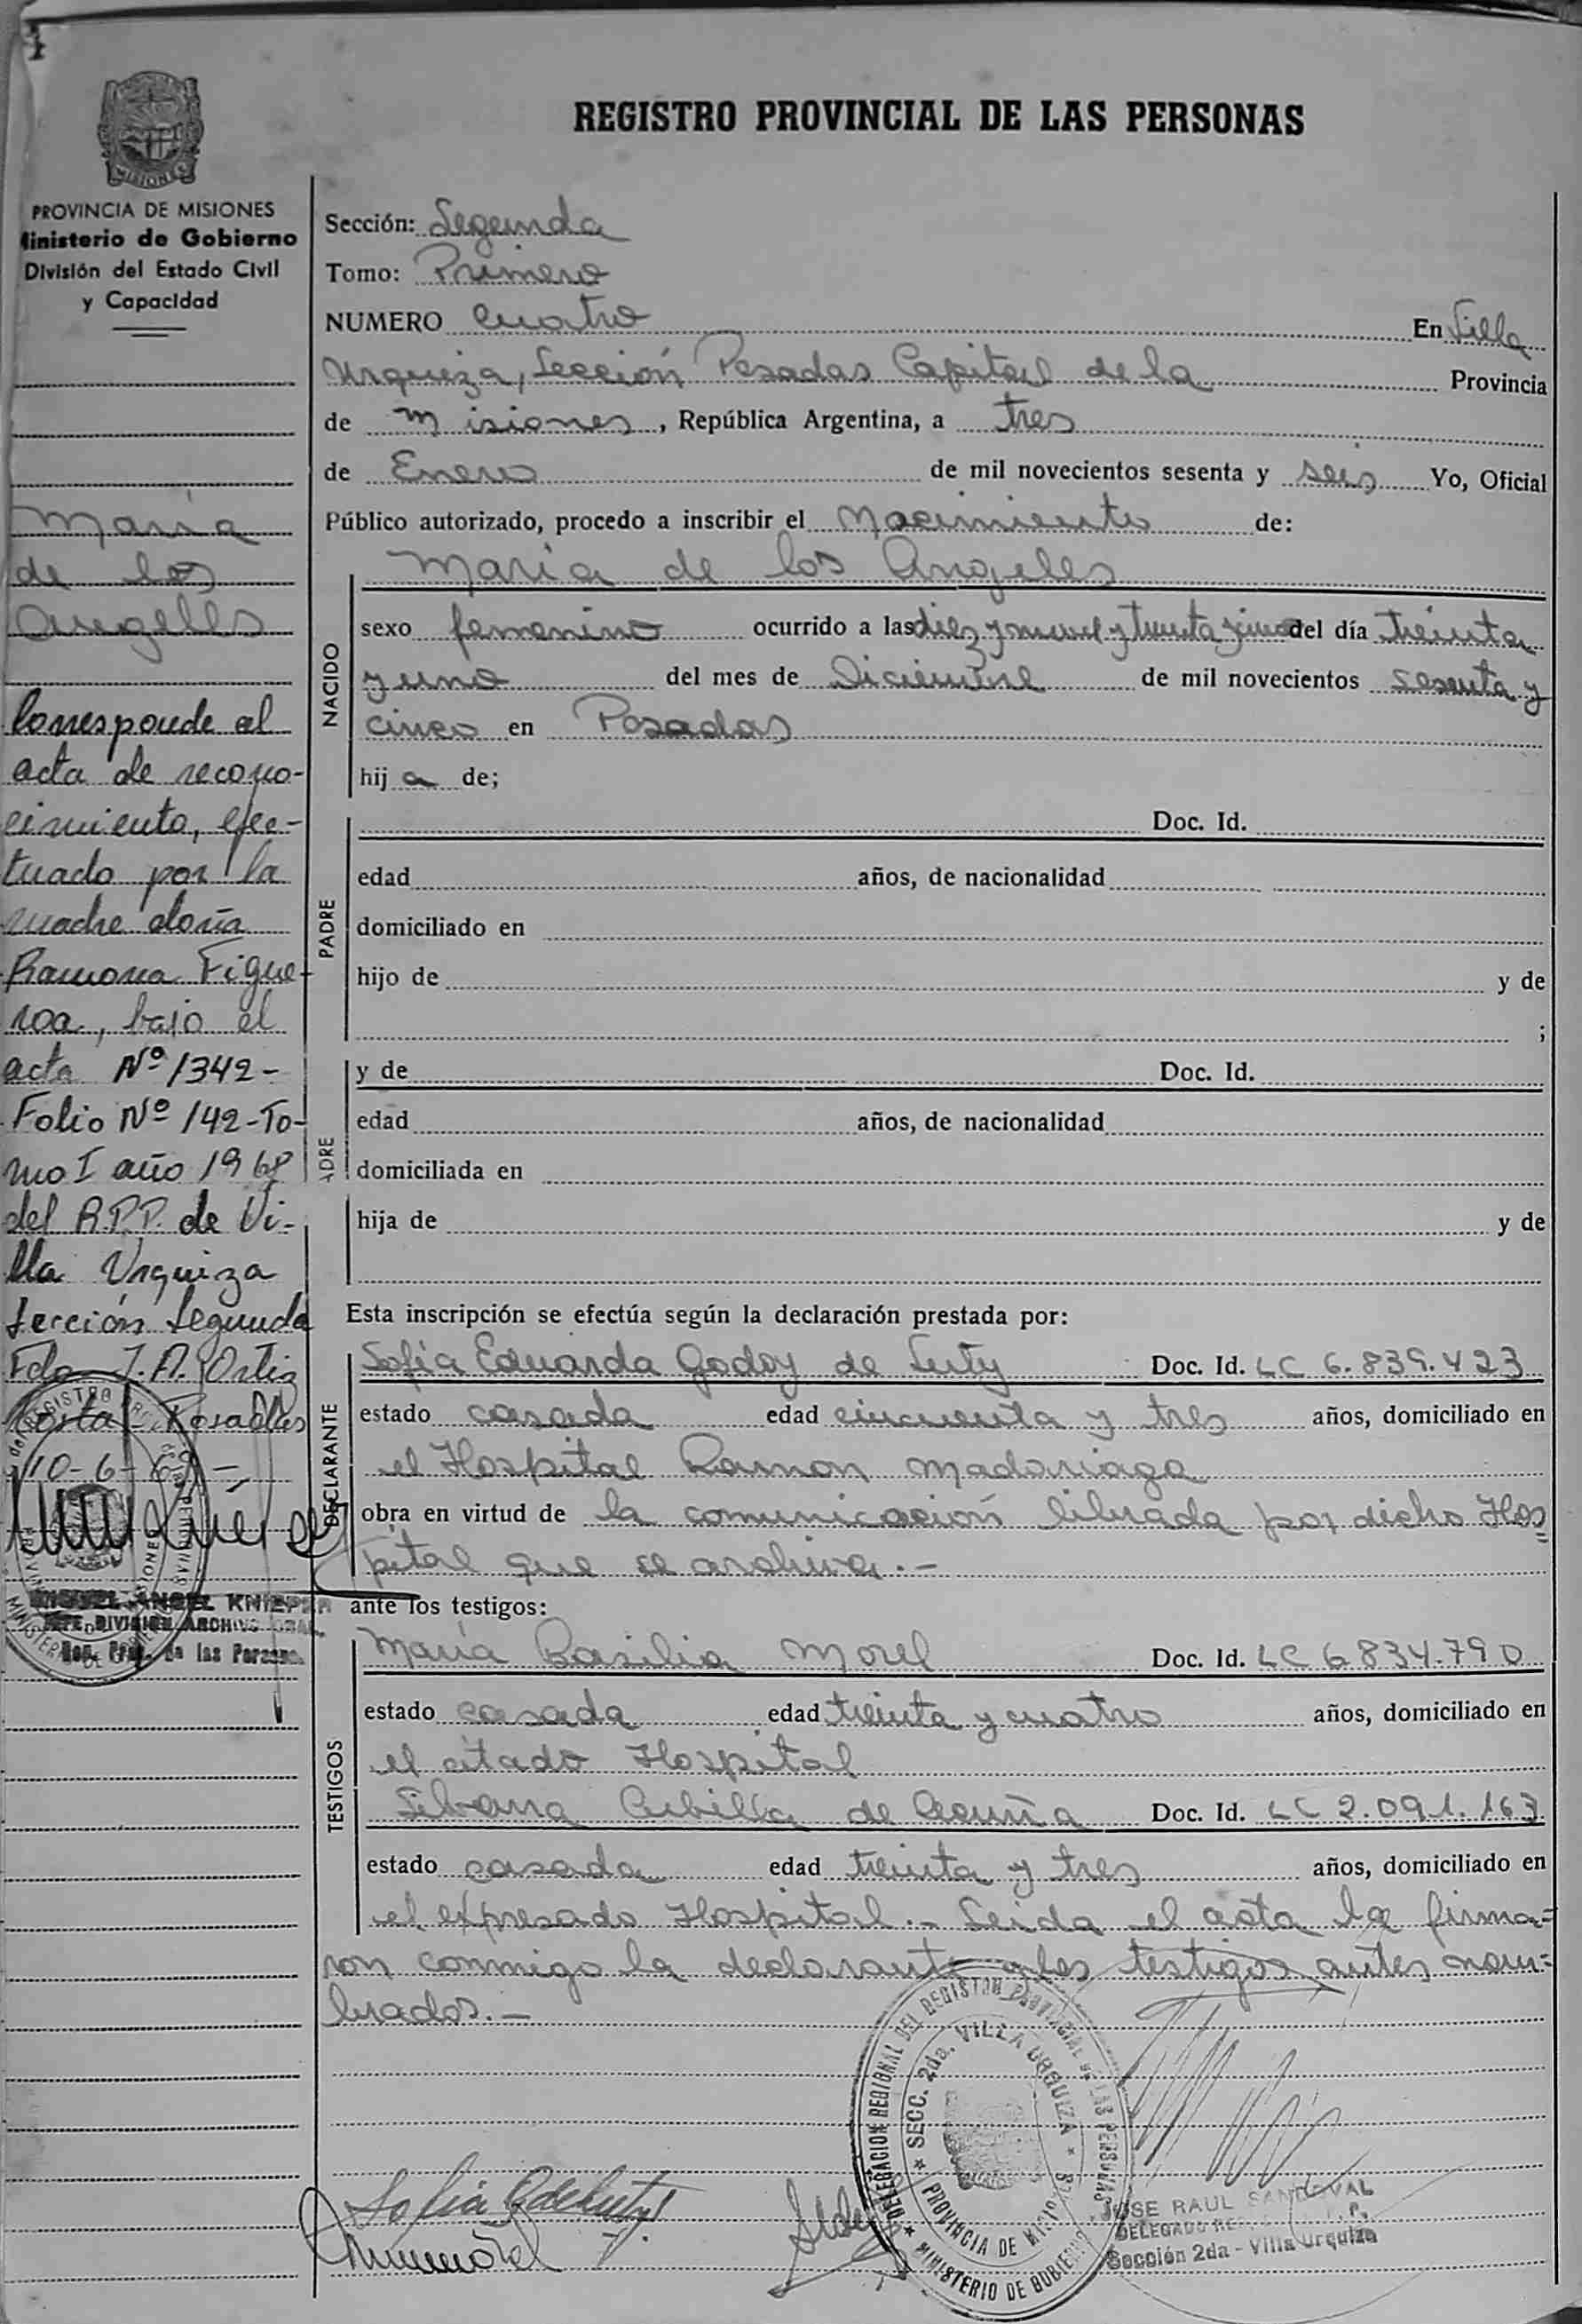 REGISTRO PROVINCIAL DE LAS PERSONAS
MISIONES
PROVINCIA DE MISIONES
Ministerio de Gobierno
División del Estado Civil
y Capacidad
Maria
de los
Angeles
Corresponde al
acta de recono-
cimiento, efec-
tuado por la
madre doña
Ramona Figue-
roa, bajo el
acta Nº 1342-
Folio Nº 142-To-
mo I año 1968
del R.P.P. de Vi-
lla Urquiza
Sección Segunda
Fdo J.A. Ortiz
Posadas
10-6-
MIGUEL ANGEL
JEFE DIVISION ARCHIVO GRAL.
Reg. Prov. de las Personas
Sección: Segunda
Tomo: Primero
NUMERO Cuatro En Villa
Urquiza, Sección Posadas Capital de la Provincia
de Misiones, República Argentina, a tres
de Enero de mil novecientos sesenta y seis Yo, Oficial
Público autorizado, procedo a inscribir el Nacimiento de:
NACIDO
Maria de los Angeles
sexo femenino ocurrido a las diez y nueve y treinta y cinco del día treinta
y uno del mes de Diciembre de mil novecientos sesenta y
cinco en Posadas
hij a de;
PADRE
Doc. Id.
edad años, de nacionalidad
domiciliado en
hijo de y de
;
ADRE
y de Doc. Id.
edad años, de nacionalidad
domiciliada en
hija de y de
Esta inscripción se efectúa según la declaración prestada por:
DECLARANTE
Sofía Eduarda Godoy de Doc. Id. LC 6.839.423
estado casada edad cincuenta y tres años, domiciliado en
el Hospital Ramon Madariaga
obra en virtud de la comunicación librada por dicho Hos
pital que se archiva.-
ante los testigos:
TESTIGOS
María Basilia Morel Doc. Id. LC 6834.790
estado casada edad treinta y cuatro años, domiciliado en
el citado Hospital
Cubilla de Acuña Doc. Id. LC 2.091.163
estado casada edad treinta y tres años, domiciliado en
el expresado Hospital.- Leida el acta la firma=
ron conmigo la declarante y los testigos antes nom=
brados.-
DELEGACION REGIONAL DEL REGISTRO PROVINCIAL DE LAS PERSONAS
SECC. 2da. VILLA URQUIZA
PROVINCIA DE MISIONES
MINISTERIO DE GOBIERNO
JOSE RAUL SANDOVAL
DELEGADO
Sección 2da - Villa Urquiza